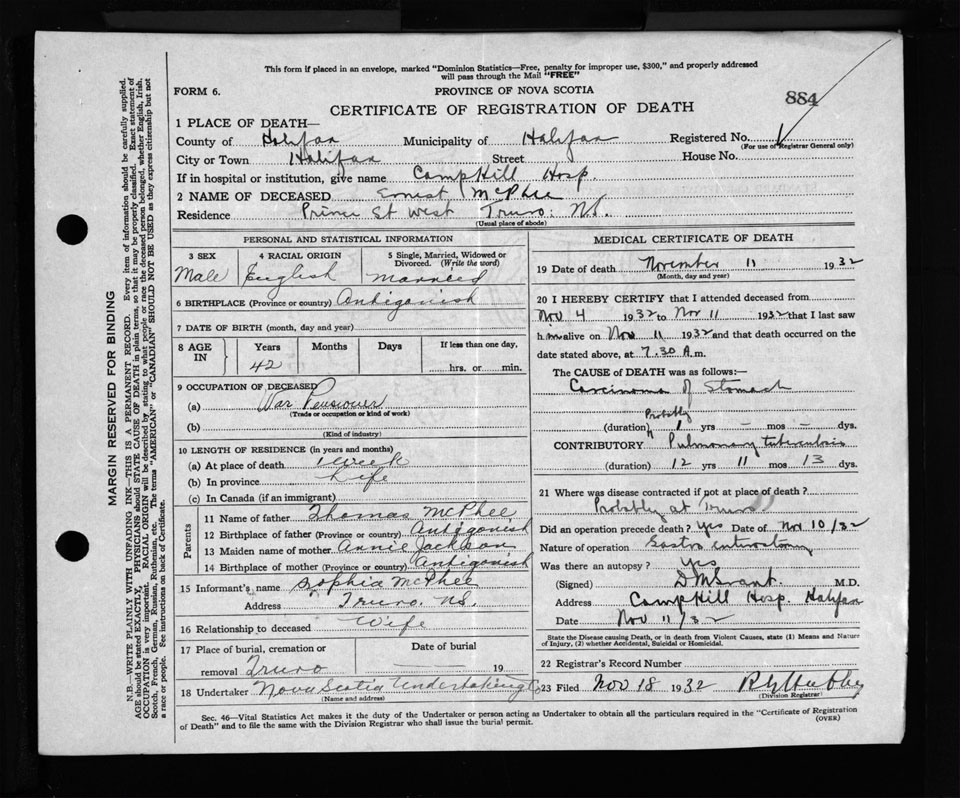 This form if placed in an envelope, marked "Dominion Statistics—Free, penalty for improper use, $300," and properly addressed
will pass through the Mail "FREE"
FORM 6.
PROVINCE OF NOVA SCOTIA
884
CERTIFICATE OF REGISTRATION OF DEATH
1 PLACE OF DEATH—
County of Halifax Municipality of Halifax Registered No. 1
(For use of Registrar General only)
City or Town Halifax Street House No.
If in hospital or institution, give name Camp Hill Hosp.
2 NAME OF DECEASED Ernest McPhee
Residence Prince St West Truro. N.S.
(Usual place of abode)
MARGIN RESERVED FOR BINDING
N.B.—WRITE PLAINLY WITH UNFADING INK—THIS IS A PERMANENT RECORD. Every item of information should be carefully supplied.
AGE should be stated EXACTLY, PHYSICIANS should STATE CAUSE OF DEATH in plain terms, so that it may be properly classified. Exact statement of
OCCUPATION is very important. RACIAL ORIGIN will be described by stating to what people or race the deceased person belonged, whether English, Irish,
Scotch, French, German, Russian, Ruthenian, etc. The terms "AMERICAN" or "CANADIAN" SHOULD NOT BE USED as they express citizenship but not
a race or people. See instructions on back of Certificate.
PERSONAL AND STATISTICAL INFORMATION
3 SEX 4 RACIAL ORIGIN 5 Single, Married, Widowed or
Divorced. (Write the word)
Male English Married
6 BIRTHPLACE (Province or country) Antigonish
7 DATE OF BIRTH (month, day and year)
8 AGE IN Years Months Days If less than one day,
42 hrs. or min.
9 OCCUPATION OF DECEASED
(a) War Pensioner
(Trade or occupation or kind of work)
(b)
(Kind of industry)
10 LENGTH OF RESIDENCE (in years and months)
(a) At place of death 1 week
(b) In province Life
(c) In Canada (if an immigrant)
Parents
11 Name of father Thomas McPhee
12 Birthplace of father (Province or country) Antigonish
13 Maiden name of mother Annie Jackson
14 Birthplace of mother (Province or country) Antigonish
15 Informant's name Sophia McPhee
Address Truro, N.S.
16 Relationship to deceased Wife
17 Place of burial, cremation or Date of burial
removal Truro 19
18 Undertaker Nova Scotia Undertaking Co
(Name and address)
MEDICAL CERTIFICATE OF DEATH
19 Date of death November 11 1932
(Month, day and year)
20 I HEREBY CERTIFY that I attended deceased from
Nov 4 1932 to Nov 11 1932 that I last saw
him alive on Nov 11 1932 and that death occurred on the
date stated above, at 7.30 A.m.
The CAUSE of DEATH was as follows:—
Carcinoma of Stomach
Probably
(duration) 1 yrs – mos – dys.
CONTRIBUTORY Pulmonary tuberculosis
(duration) 12 yrs 11 mos 13 dys.
21 Where was disease contracted if not at place of death?
Probably at Truro
Did an operation precede death? Yes Date of Nov 10/32
Nature of operation Gastro enterostomy
Was there an autopsy? Yes
(Signed) M.D.
Address Camp Hill Hosp. Halifax
Date Nov 11/32
State the Disease causing Death, or in death from Violent Causes, state (1) Means and Nature
of Injury, (2) whether Accidental, Suicidal or Homicidal.
22 Registrar's Record Number
23 Filed Nov 18 1932
(Division Registrar)
Sec. 46—Vital Statistics Act makes it the duty of the Undertaker or person acting as Undertaker to obtain all the particulars required in the "Certificate of Registration
of Death" and to file the same with the Division Registrar who shall issue the burial permit. (OVER)